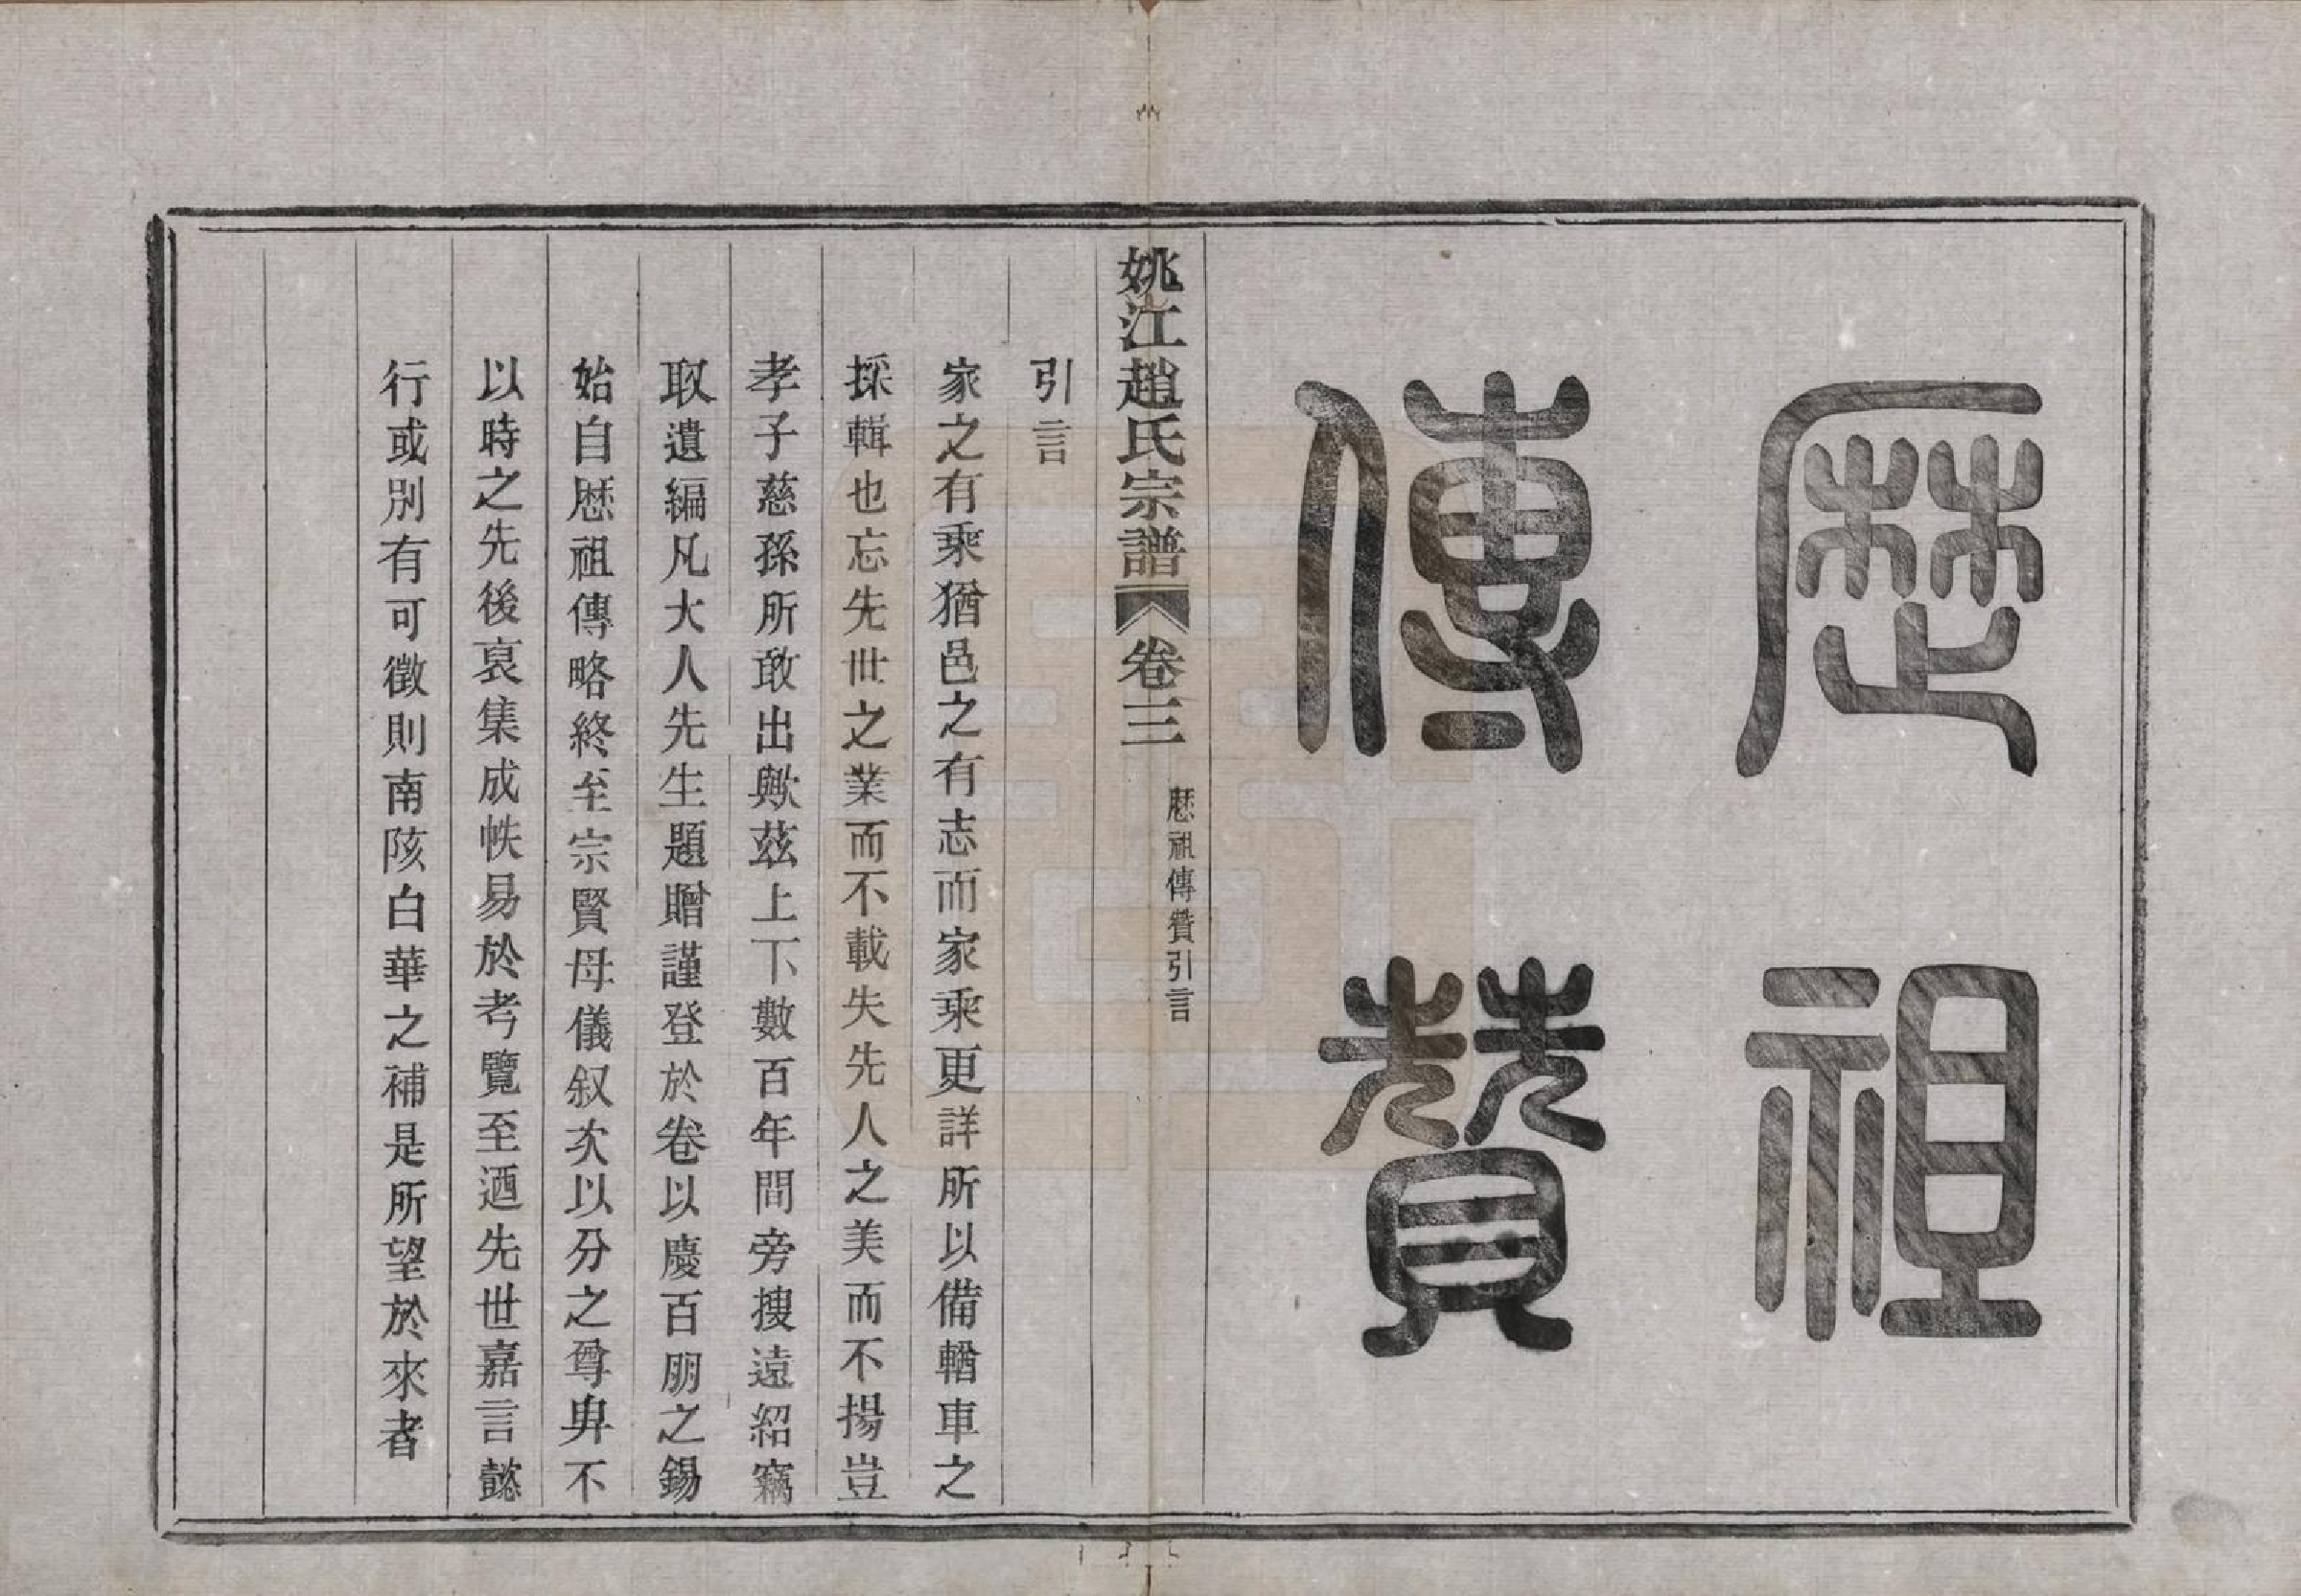 歷祖
傳贊
姚江趙氏宗譜 卷三 歷祖傳贊引言
引言
家之有乘猶邑之有志而家乘更詳所以備輶車之
採輯也忘先世之業而不載失先人之美而不揚豈
孝子慈孫所敢出歟茲上下數百年間旁搜遠紹竊
取遺編凡大人先生題贈謹登於卷以慶百朋之錫
始自歷祖傳略終至宗賢母儀叙次以分之尊卑不
以時之先後裒集成帙易於考覽至迺先世嘉言懿
行或別有可徵則南陔白華之補是所望於來者